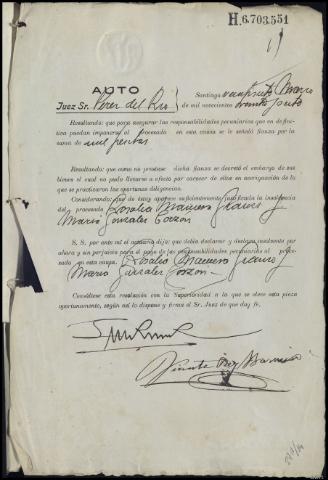 H.6.703.551
AUTO
Juez Sr. Pérez del Río
Santiago veintisiete Marzo
de mil novecientos treinta y siete
Resultando: que para asegurar las responsabilidades pecuniarias que en defini-
tiva puedan imponerse al procesado en esta causa se le señaló fianza por la
suma de mil pesetas
Resultando: que como no prestase dicha fianza se decretó el embargo de sus
bienes el cual no pudo llevarse a efecto por carecer de ellos en averiguación de lo que
se practicaron las oportunas diligencias.
Considerando: que de estoy aparece suficientemente justificada la insolvencia
del procesado Rosalía
Mario González
S. S. por ante mi el actuario dijo: que debía declarar y declara insolvente por
ahora y sin perjuicio para el pago de las responsabilidades pecuniarias al proce-
sado en esta causa,
Mario
Consúltese esta resolución con la Superioridad a la que se eleve esta pieza
oportunamente, según así lo dispone y firma el Sr. Juez de que doy fe.
Vicente Rey